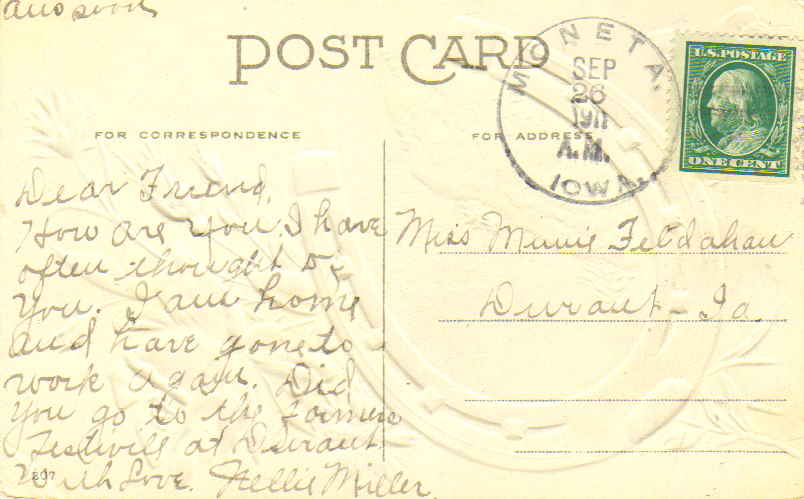 Ans soon
POST CARD
MONETA.
SEP
26
1911
A.M.
IOWA.
U.S. POSTAGE
ONE CENT
FOR CORRESPONDENCE
FOR ADDRESS
Dear Friend.
How are you I have
often thought of
you. I am home
and have gone to
work again. Did
you go to the Farmers
Festivell at Durant
With Love. Nellie Miller.
Miss Minnie Feldahan
Durant - Ia.
807